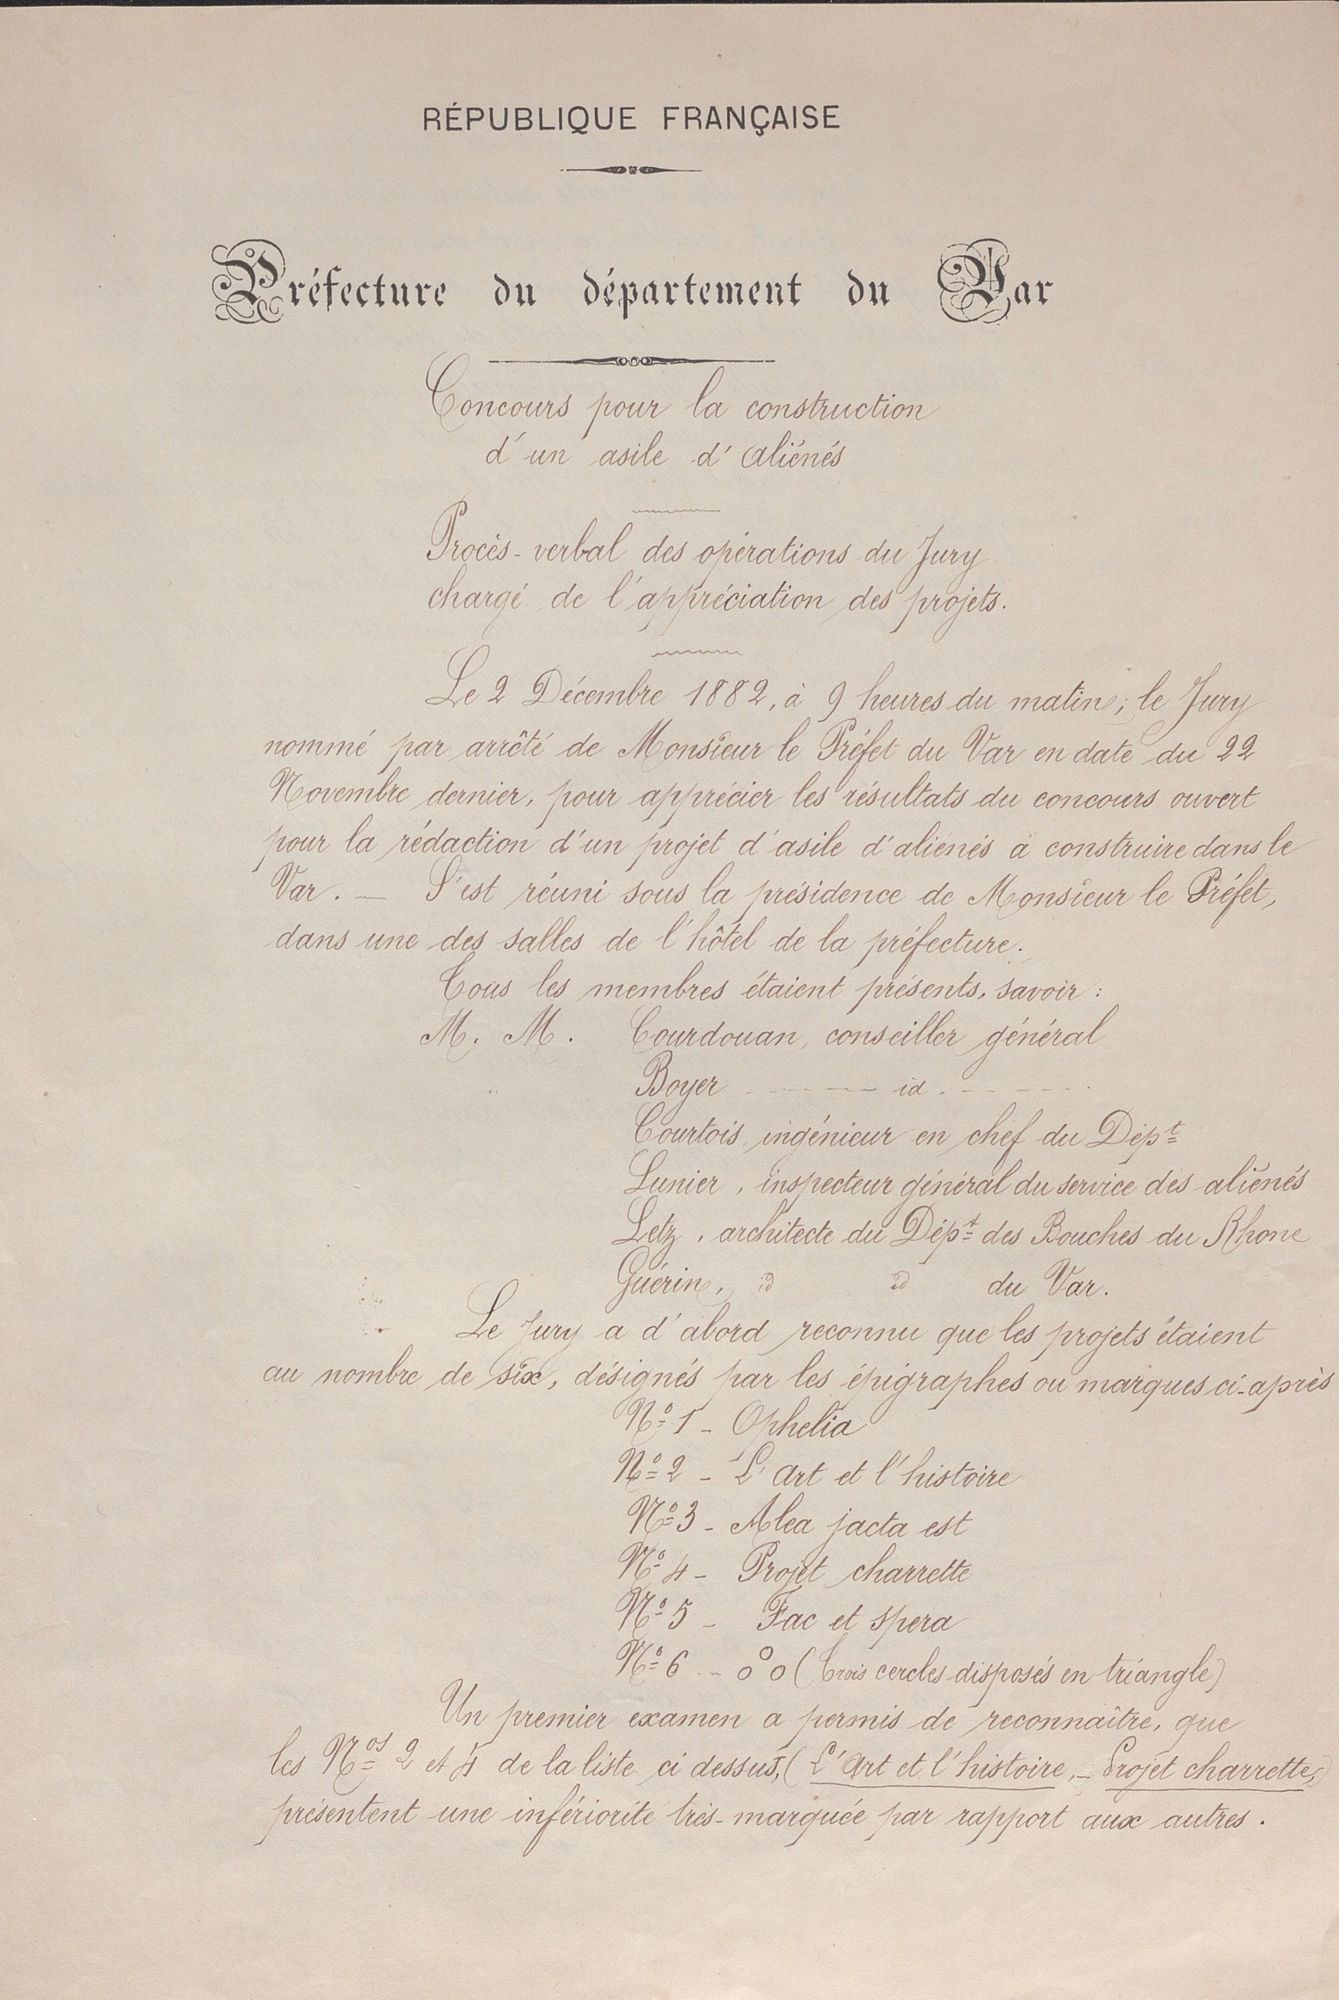 RÉPUBLIQUE FRANÇAISE
Préfecture du département du Var
Concours pour la construction
d'un asile d'aliénés
Procès-verbal des opérations du Jury
chargé de l'appréciation des projets.
Le 2 Décembre 1882, à 9 heures du matin, le Jury
nommé par arrêté de Monsieur le Préfet du Var en date du 22
Novembre dernier, pour apprécier les résultats du concours ouvert
pour la rédaction d'un projet d'asile d'aliénés à construire dans le
Var. — S'est réuni sous la présidence de Monsieur le Préfet,
dans une des salles de l'hôtel de la préfecture.
Tous les membres étaient présents, savoir :
M. M. Courdouan, conseiller général
Boyer - - - - id. - - - -
Courtois, ingénieur en chef du Dépt
Lunier, inspecteur général du service des aliénés
Letz, architecte du Dépt des Bouches du Rhone
Guérin, id id du Var.
Le Jury a d'abord reconnu que les projets étaient
au nombre de six, désignés par les épigraphes ou marques ci-après
No 1 - Ophelia
No 2 - L'Art et l'histoire
No 3 - Alea jacta est
No 4 - Projet charrette
No 5 - Fac et spera
No 6 - o o o (Trois cercles disposés en triangle)
Un premier examen a permis de reconnaître, que
les Nos 2 et 4 de la liste ci dessus, (L'Art et l'histoire, - Projet charrette,)
présentent une infériorité très-marquée par rapport aux autres.